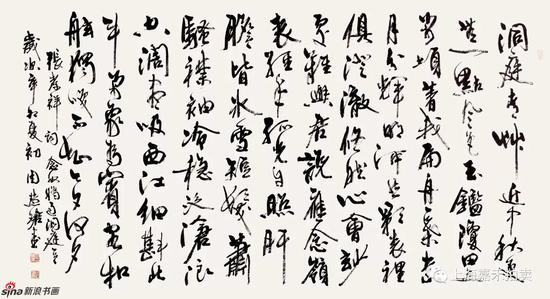 洞庭青草近中秋更
無一點風色玉鑑瓊田
三萬頃著我扁舟一葉素
月分輝明河共影表裡
俱澄澈悠然心會妙
處難與君說應念嶺
表經年孤光自照肝
膽皆冰雪短髮蕭
騷襟袖冷穩泛滄浪
空闊盡吸西江細斟北
斗萬象為賓客扣
舷獨嘯不知今夕何夕
張孝祥詞念奴嬌過洞庭
歲次辛卯夏初周慧珺書
sina新浪书画
@上海嘉禾拍卖